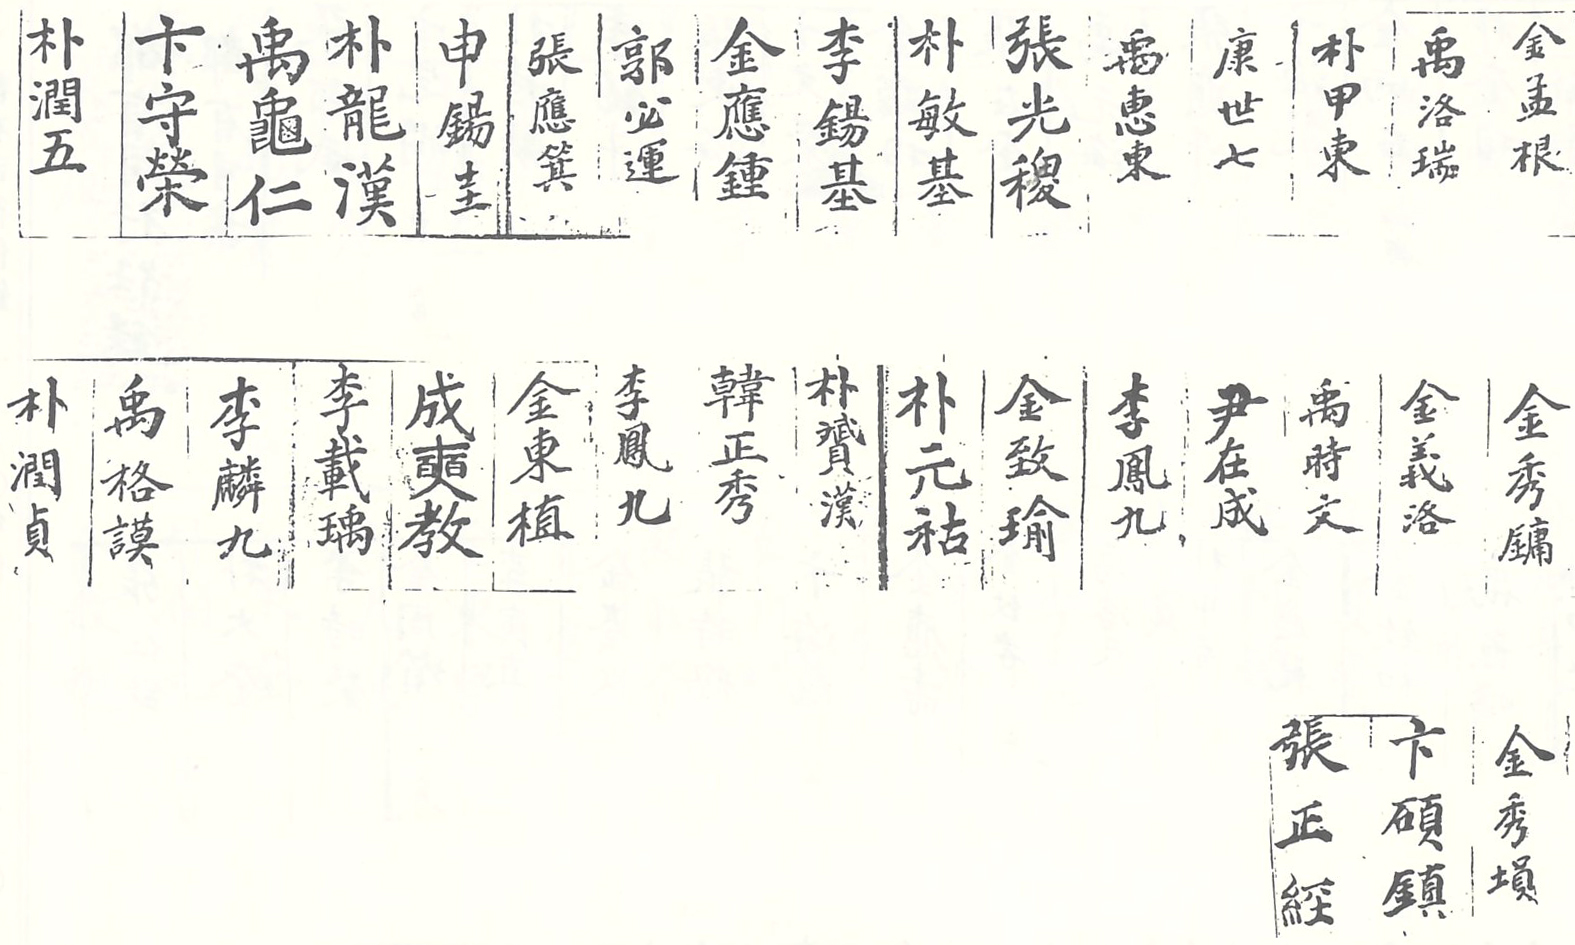 金孟根
禹洛瑞
朴甲東
康世七
禹惠東
張光稷
朴敏基
李錫基
金應鍾
郭必運
張應箕
申錫圭
朴龍漢
禹龜仁
卞守榮
朴潤五
金秀鏞
金義洛
禹時文
尹在成
李鳳九
金致瑜
朴元祜
朴贇漢
韓正秀
李鳳九
金東植
成奭教
李載瑀
李麟九
禹格謨
朴潤貞
金秀塤
卞碩鎮
張正經